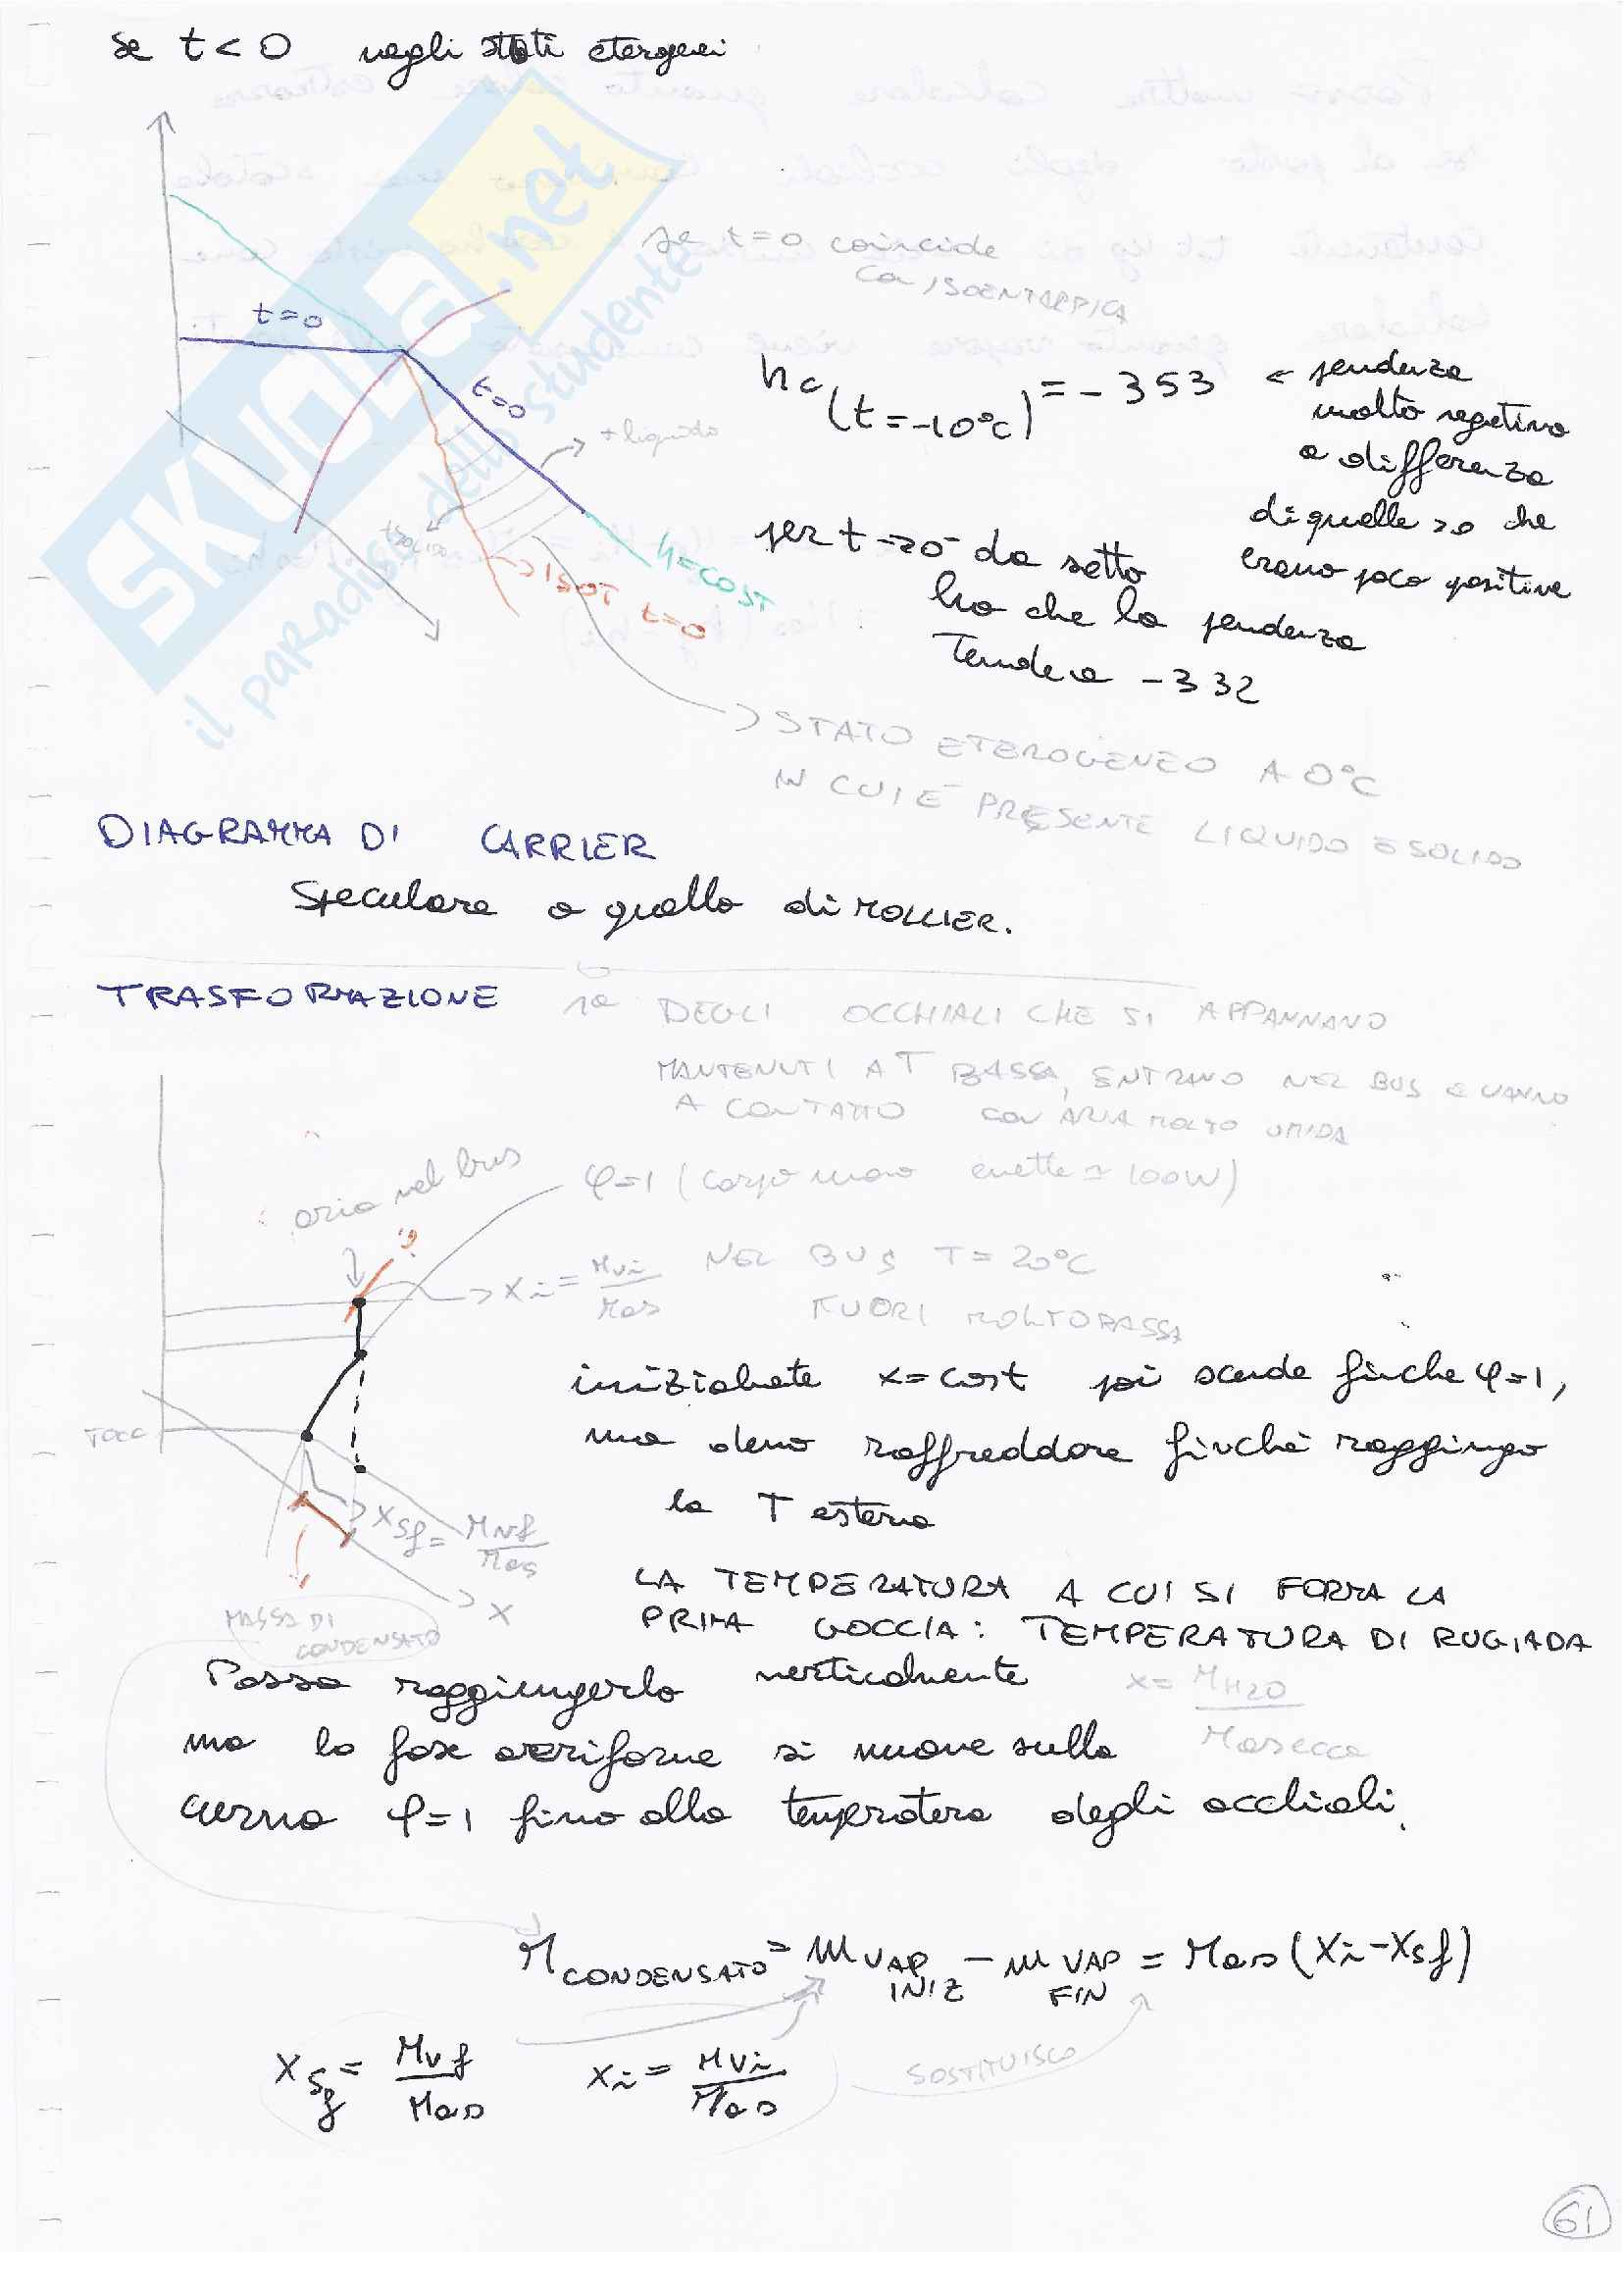 se t < 0 negli stati eterogenei
se t=0 coincide
con ISOENTALPICA
t=0
t=0
+ liquido
+ solido
h=COST
ISOT t=0
hc(t=-10°C) = -353 ← pendenza
molto negativa
a differenza
di quelle >0 che
erano poco positive
per t→0⁻ da sotto
ho che la pendenza
Tende a -332
STATO ETEROGENEO A 0°C
IN CUI È PRESENTE LIQUIDO E SOLIDO
DIAGRAMMA DI CARRIER
Speculare a quello di MOLLIER.
TRASFORMAZIONE 1ª DEGLI OCCHIALI CHE SI APPANNANO
MANTENUTI A T BASSA, ENTRANO NEL BUS E VANNO
A CONTATTO CON ARIA MOLTO UMIDA
aria nel bus
φ=1 (corpo umano emette ≃ 100W)
xi = Mvi / Mas
NEL BUS T = 20°C
FUORI MOLTO BASSA
inizialmente x=cost poi scende finche φ=1,
ma devo raffreddare finchè raggiungo
la T esterna
TOCC
xsf = Mvf / Mas
x
MASSA DI
CONDENSATO
LA TEMPERATURA A CUI SI FORMA LA
PRIMA GOCCIA: TEMPERATURA DI RUGIADA
Posso raggiungerlo verticalmente
x = MH2O / Masecca
ma la fase aeriforme si muove sulla
curva φ=1 fino alla tempratura degli occhiali.
M CONDENSATO = m VAP INIZ - m VAP FIN = Mas (xi - xsf)
xsf = Mvf / Mas xi = Mvi / Mas
SOSTITUISCO
61
SKUOLA.net
il paradiso dello studente